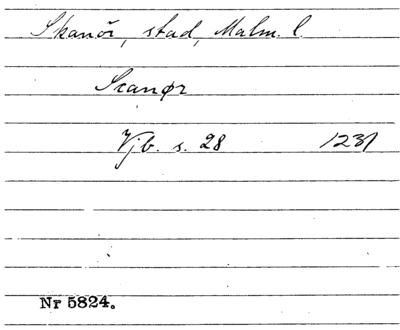 Skanör, stad, Malm. l.
Scanør
Vjb. s. 28 1231
Nr 5824.